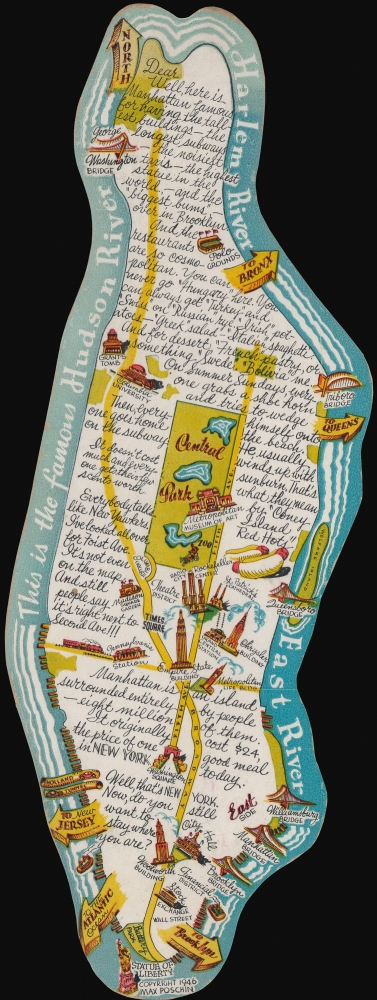 NORTH
Harlem River
This is the famous Hudson River
East River
Dear
Well, here is
Manhattan famous
for having the tall-
est buildings — the
longest subways
the noisiest
taxis — the highest
statue in the
world — and the
"biggest bums"
over in Brooklyn
And the
restaurants
are so cosmo-
politan. You can
never go "Hungary" here. You
can always get "Turkey" and
"Swiss" on "Russian" rye, "Irish" pot-
atoes — "Greek" salad — "Italian" spaghetti
and for dessert, "French" pastry, or
something "Swede". "Bolivia" me.
On Summer Sundays every
one grabs a shoe horn
and tries to wedge
himself onto
the beach.
He usually
winds up with
sunburn, that's
what they mean
by "Coney
Island
Red Hot."
Then, every
one goes home
on the subway
It doesn't cost
much and every
one gets their few
scents worth.
Everybody talks
like New Yawkers.
I've looked all over
for Toist Ave.
It's not even
on the map.
And still
people say
it's right next to
Second Ave!!!
Manhattan is an island
surrounded entirely by people
— eight million of them.
It originally cost $24,
the price of one good meal
in NEW YORK today.
Well, that's NEW YORK.
Now, do you still
want to
stay where
you are?
George
Washington
BRIDGE
Polo
GROUNDS
TO
BRONX
GRANT'S
TOMB
Columbia
UNIVERSITY
Triboro
BRIDGE
TO
QUEENS
Central
Park
Metropolitan
MUSEUM OF ART
ZOO
RADIO
CITY
Rockefeller
CENTER
St. Pat's
CATHEDRAL
WELFARE ISLAND
Queensboro
BRIDGE
Theatre
DISTRICT
TIMES
SQUARE
Madison
SQ.
GARDEN
GRAND
CENTRAL
STATION
Chrysler
BUILDING
Pennsylvania
Station
Empire State
BUILDING
Metropolitan
LIFE BLDG
Washington
SQUARE
HOLLAND
TUNNEL
TO New
JERSEY
East
SIDE
Williamsburg
BRIDGE
Manhattan
BRIDGE
Brooklyn
BRIDGE
City Hall
Woolworth
BUILDING
Financial
DISTRICT
Stock
EXCHANGE
WALL STREET
TO
ATLANTIC
OCEAN
Battery
PARK
TO
Brooklyn
STATUE OF
LIBERTY
COPYRIGHT 1946
MAX POSCHIN